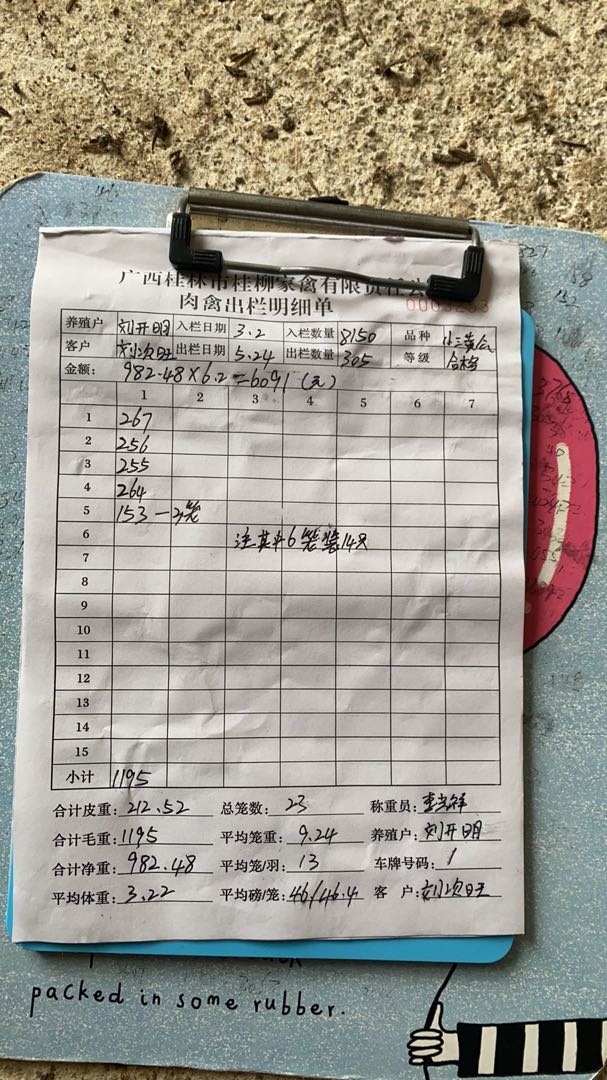 广西桂林市桂柳家禽有限责任公
肉禽出栏明细单 0003253
养殖户 刘开明 入栏日期 3.2 入栏数量 8150 品种 小三黄
客户 刘次旺 出栏日期 5.24 出栏数量 305 等级 合格
金额: 982.48×6.2=6091(元)
1 2 3 4 5 6 7
1 267
2 256
3 255
4 264
5 153-3笼
6 注其中6笼装14只
7
8
9
10
11
12
13
14
15
小计 1195
合计皮重: 212.52 总笼数: 23 称重员:
合计毛重: 1195 平均笼重: 9.24 养殖户: 刘开明
合计净重: 982.48 平均笼/羽: 13 车牌号码: /
平均体重: 3.22 平均磅/笼: 46/46.4 客 户: 刘次旺
packed in some rubber.